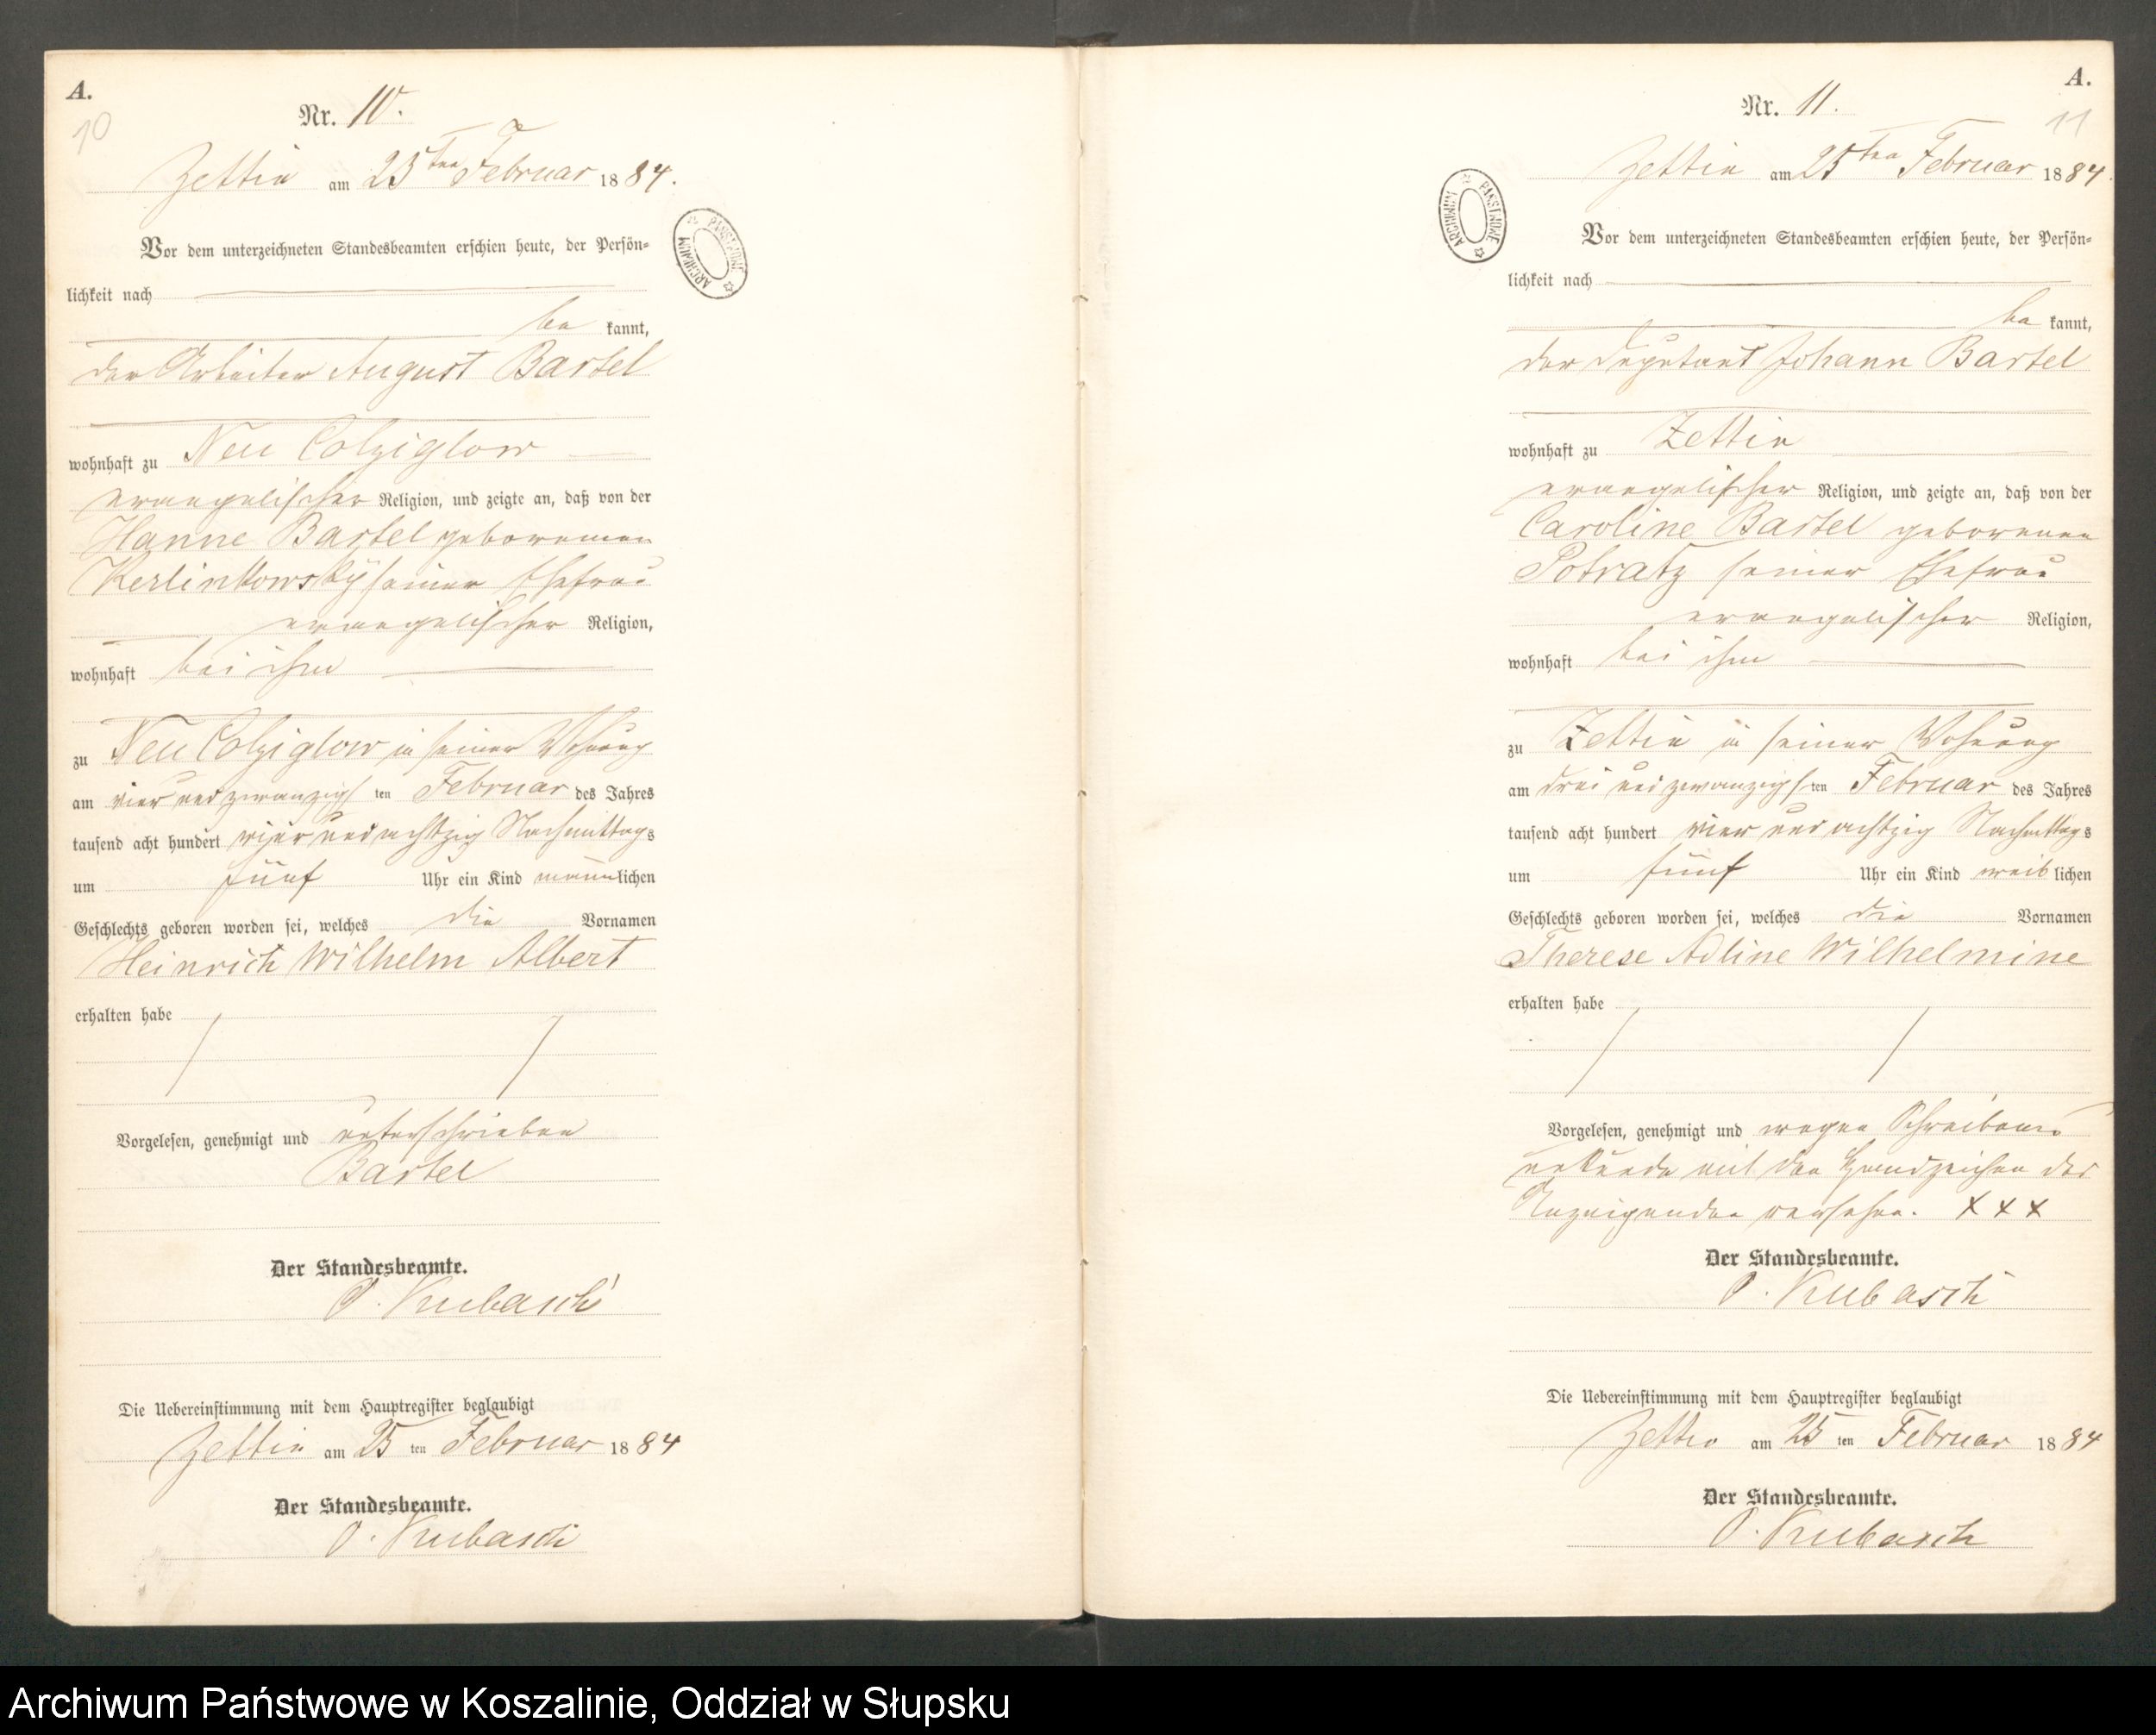 A.
10
Nr. 10.
Zettin am 25ten Februar 1884.
Vor dem unterzeichneten Standesbeamten erschien heute, der Persön=
lichkeit nach
be kannt,
der Arbeiter August Bartel
wohnhaft zu Neu Colziglow
evangelischer Religion, und zeigte an, daß von der
Hanne Bartel geborenen
Kerlinkowsky seiner Ehefrau
evangelischer Religion,
wohnhaft bei ihm
zu Neu Colziglow in seiner Wohnung
am vier und zwanzigsten Februar des Jahres
tausend acht hundert vier und achtzig Nachmittags
um fünf Uhr ein Kind männlichen
Geschlechts geboren worden sei, welches die Vornamen
Heinrich Wilhelm Albert
erhalten habe
Vorgelesen, genehmigt und unterschrieben
Bartel
Der Standesbeamte.
O. Kubasch
Die Uebereinstimmung mit dem Hauptregister beglaubigt
Zettin am 25 ten Februar 1884
Der Standesbeamte.
O. Kubasch
ARCHIWUM PAŃSTWOWE
A.
11
Nr. 11.
Zettin am 25ten Februar 1884.
Vor dem unterzeichneten Standesbeamten erschien heute, der Persön=
lichkeit nach
be kannt,
der Deputant Johann Bartel
wohnhaft zu Zettin
evangelischer Religion, und zeigte an, daß von der
Caroline Bartel geborenen
Potratz seiner Ehefrau
evangelischer Religion,
wohnhaft bei ihm
zu Zettin in seiner Wohnung
am drei und zwanzigsten Februar des Jahres
tausend acht hundert vier und achtzig Nachmittags
um fünf Uhr ein Kind weiblichen
Geschlechts geboren worden sei, welches die Vornamen
Therese Adline Wilhelmine
erhalten habe
Vorgelesen, genehmigt und wegen Schreibens
unkunde mit den Handzeichen des
Anzeigenden versehen. XXX
Der Standesbeamte.
O. Kubasch
Die Uebereinstimmung mit dem Hauptregister beglaubigt
Zettin am 25 ten Februar 1884
Der Standesbeamte.
O. Kubasch
ARCHIWUM PAŃSTWOWE
Archiwum Państwowe w Koszalinie, Oddział w Słupsku